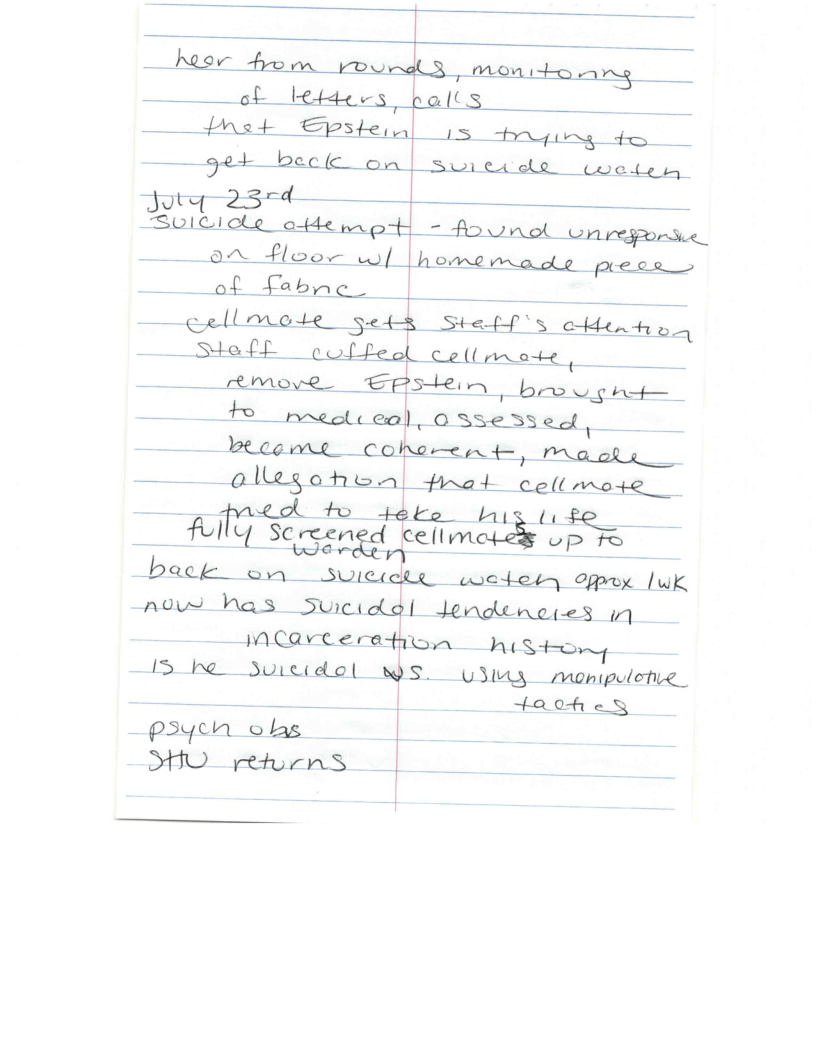 hear from rounds, monitoring
of letters, calls
that Epstein is trying to
get back on suicide watch
July 23rd
suicide attempt - found unresponsive
on floor w/ homemade piece
of fabric
cellmate gets staff's attention
staff cuffed cellmate,
remove Epstein, brought
to medical, assessed,
become coherent, made
allegation that cellmate
tried to take his life
fully screened cellmates up to
warden
back on suicide watch approx 1wk
now has suicidal tendencies in
incarceration history
is he suicidal vs. using manipulative
tactics
psych obs
SHU returns